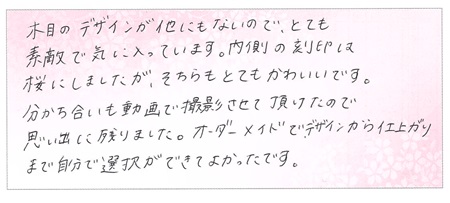 木目のデザインが他にもないので、とても
素敵で気に入っています。内側の刻印は
桜にしましたが、そちらもとてもかわいいです。
分かち合いも動画で撮影させて頂けたので
思い出に残りました。オーダーメイドで、デザインから仕上がり
まで自分で選択ができてよかったです。